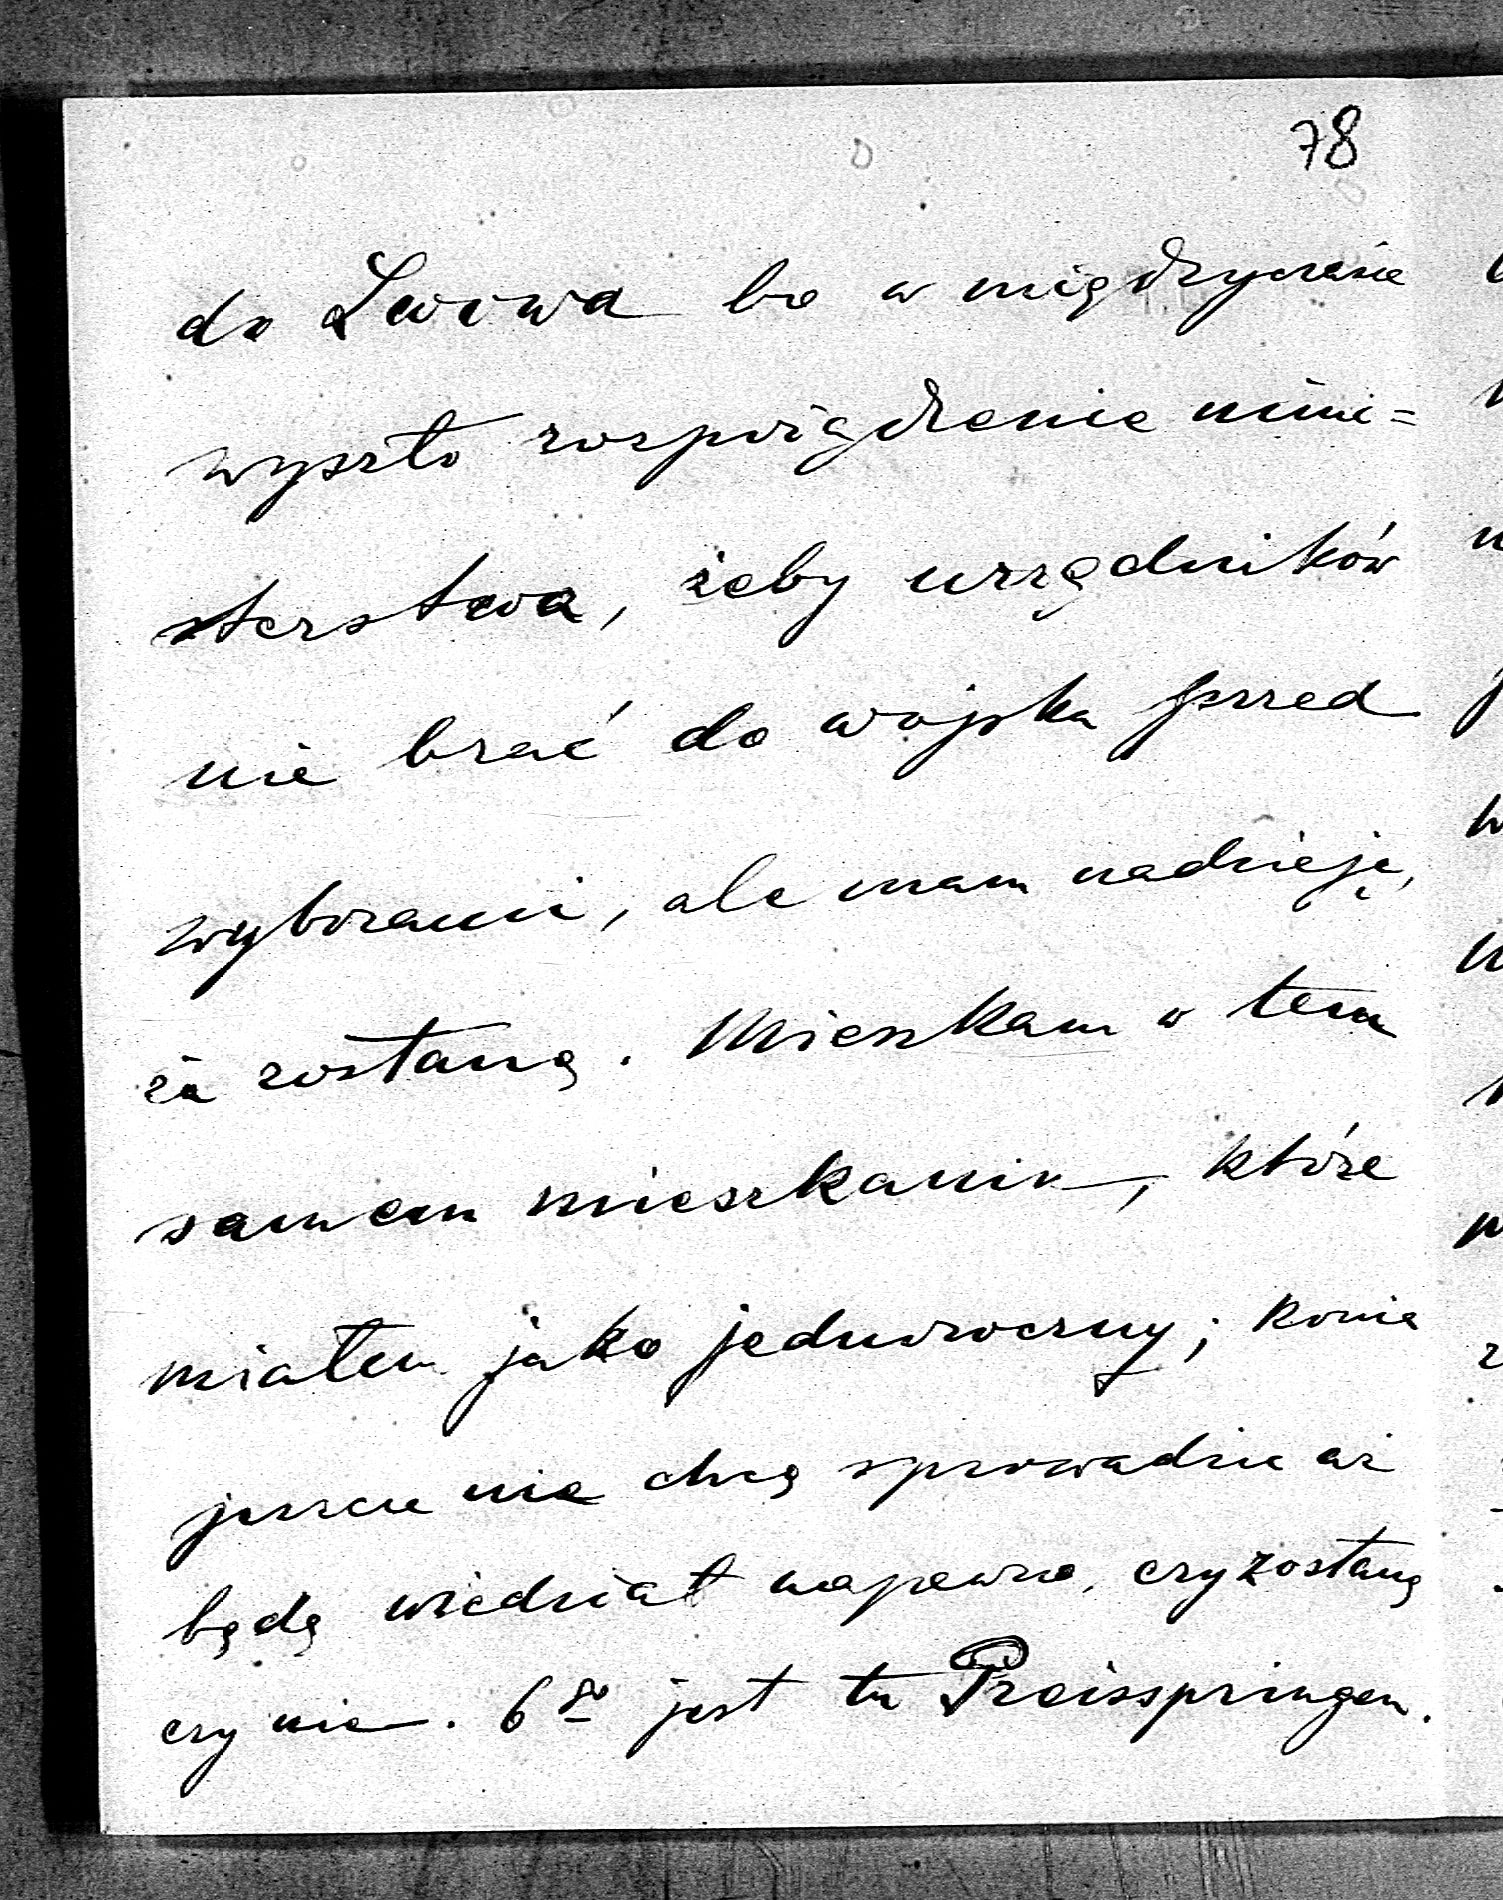 78
do Lwowa bo w międzyczasie
wyszło rozporządzenie mini=
sterstwa, żeby urzędników
nie brać do wojska przed
wyborami, ale mam nadzieję,
że zostanę. Mieszkam w tem
samem mieszkaniu, które
miałem jako jednoroczny; konia
jeszcze nie chcę sprowadzić aż
będę wiedział napewno, czy zostanę
czy nie. 6go jest tu Preisspringen.